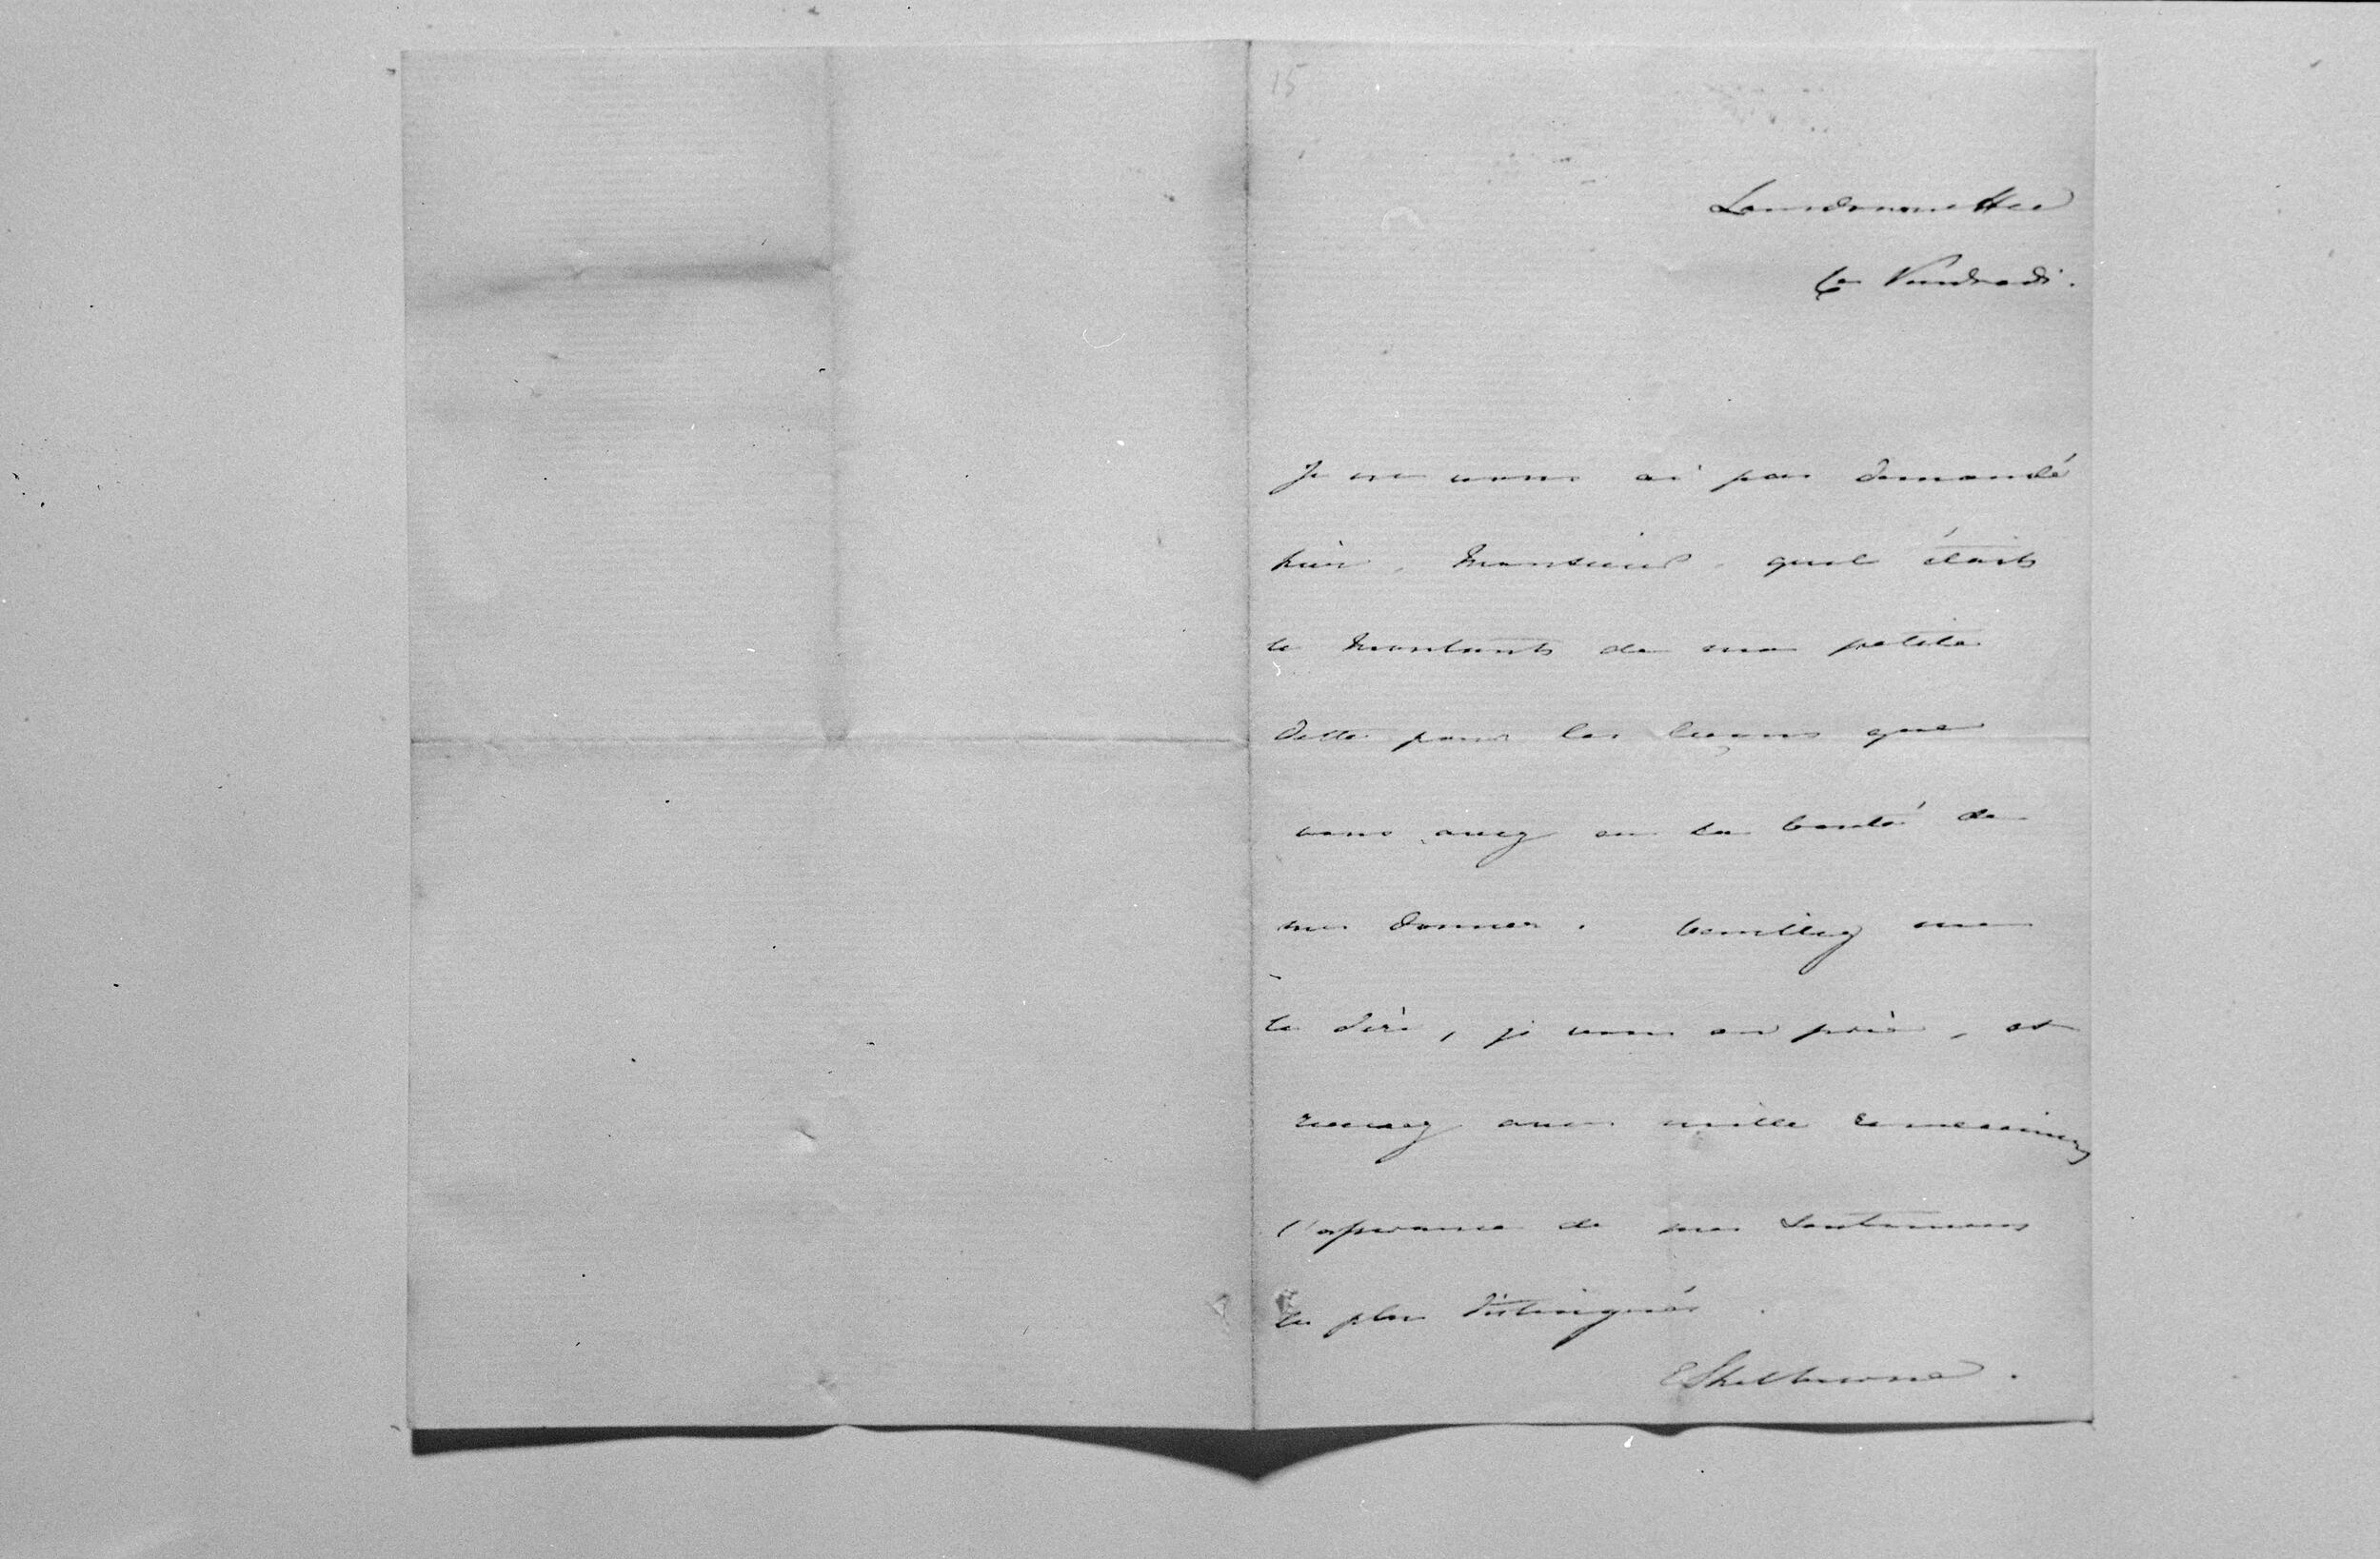 15
Lansdowne Hse
Ce Vendredi.
Je ne vous ai pas demandé
hier, Monsieur, quel était
le montant de ma petite
dette pour les leçons que
vous avez eu la bonté de
me donner. Veuillez me
le dire, je vous en prie, et
recevez avec mille remerciemens
l'assurance de mes sentimens
les plus distingués.
E Shelburne.